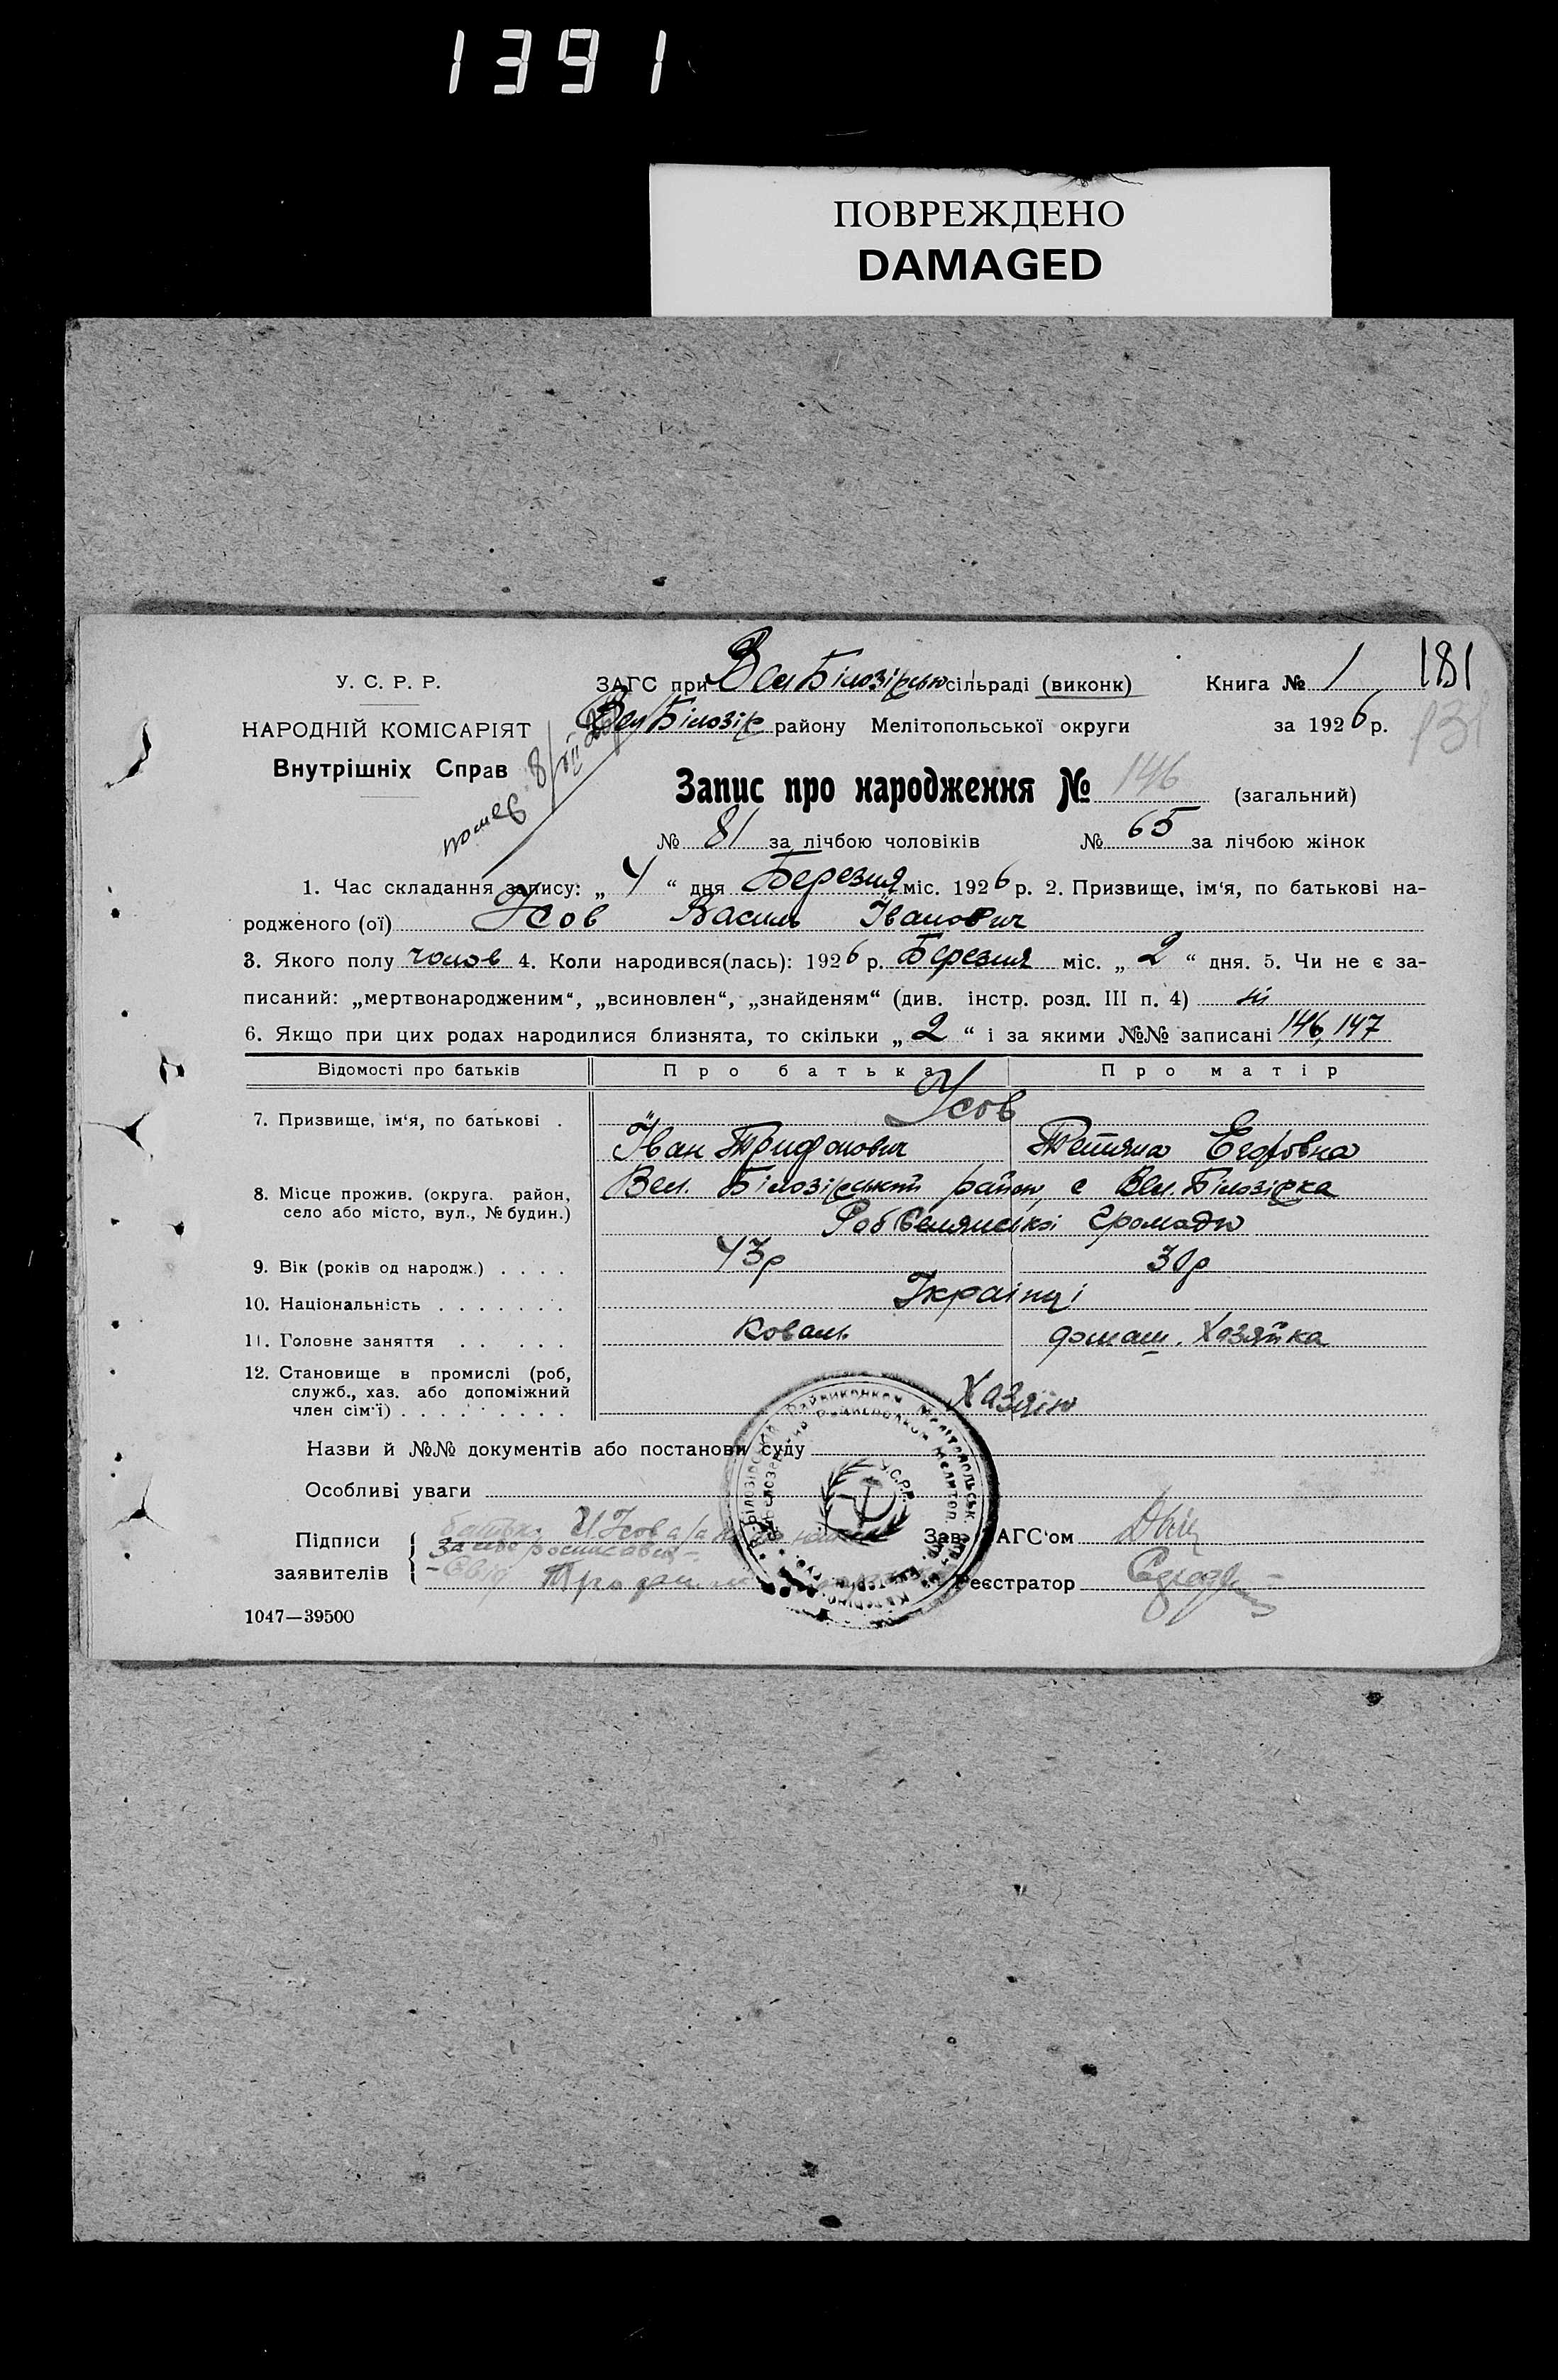 1391
ПОВРЕЖДЕНО
DAMAGED
181
У. С. Р. Р.
НАРОДНІЙ КОМІСАРІЯТ
Внутрішніх Справ
ЗАГС при Вел Білозірськ сільраді (виконк) Книга № 1
Вел Білозір району Мелітопольської округи за 1926 р.
131
помер 8/III 26
Запис про народження № 146 (загальний)
№ 81 за лічбою чоловіків № 65 за лічбою жінок
1. Час складання запису: „ 4 “ дня Березня міс. 1926 р. 2. Призвище, ім‘я, по батькові на-
родженого (ої) Усов Василь Іванович
3. Якого полу чолов 4. Коли народився(лась): 1926 р. Березня міс. „ 2 “ дня. 5. Чи не є за-
писаний: „мертвонародженим“, „всиновлен“, „знайденям“ (див. інстр. розд. III п. 4) ні
6. Якщо при цих родах народилися близнята, то скільки „ 2 “ і за якими №№ записані 146, 147
Відомості про батьків Про батька Про матір
Усов
7. Призвище, ім‘я, по батькові . Іван Трифонович Тетяна Егоровна
8. Місце прожив. (округа. район, Вел. Білозірський район, с Вел. Білозірка
село або місто, вул., № будин.) громади
9. Вік (років од народж.) . . . . 43р 30р
10. Національність . . . . . . . Українці
11. Головне заняття . . . . . . Коваль домаш. Хазяйка
12. Становище в промислі (роб,
служб., хаз. або допоміжний
член сім‘ї) . . . . . . . . . Хазяїн
Назви й №№ документів або постанови суду
У.С.Р.Р.
Особливі уваги
Підписи
заявителів
батьк. И. Усов а за
его росписався
Зав. ЗАГС‘ом
Реєстратор
1047—39500